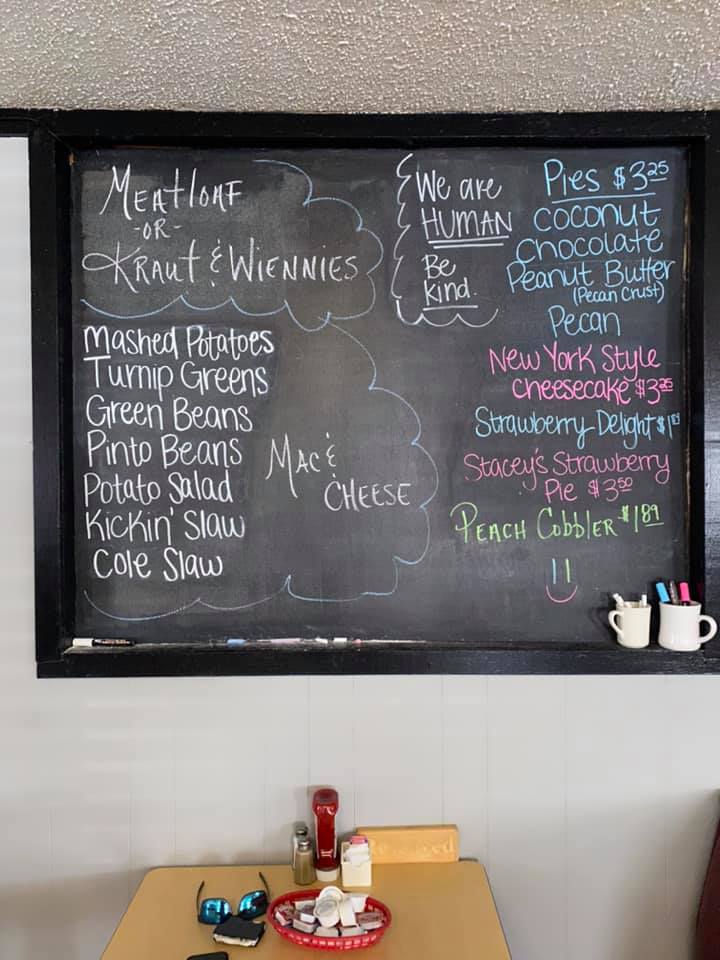 MEATLOAF
-OR-
KRAUT & WIENNIES
Mashed Potatoes
Turnip Greens
Green Beans
Pinto Beans
Potato Salad
Kickin' Slaw
Cole Slaw
MAC &
CHEESE
We are
HUMAN
Be
kind.
Pies $3.25
Coconut
Chocolate
Peanut Butter
(Pecan Crust)
Pecan
New York Style
Cheesecake $3.25
Strawberry Delight
Stacey's Strawberry
Pie $3.50
PEACH CobblER $1.89